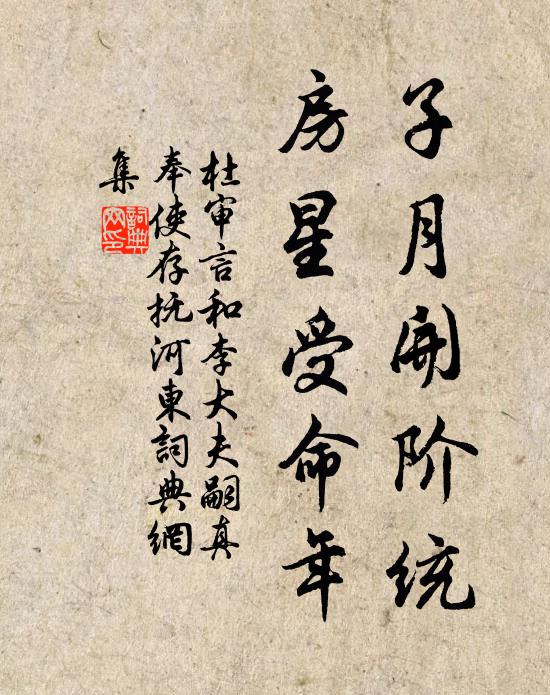 子月开阶统
房星受命年
杜审言和李大夫嗣真
奉使存抚河東詞典網
集
詞典网印